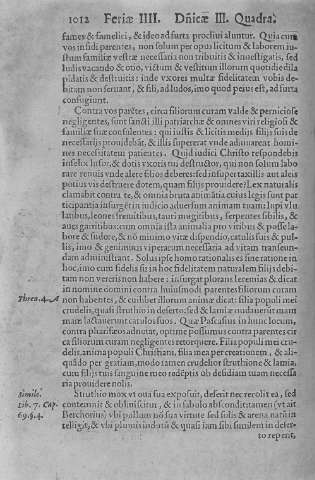 1012 Feriæ IIII. Dñicæ III. Quadra.
fames & famelici, & ideo ad furta procliui aluntur. Quia cura
vos infidi parentes, non solum per opus licitum & laborem iu-
stum familiæ vestræ necessaria non tribuitis & inuestigatis, sed
ludis vacando & otio, victum & vestitum illorum quotidie dila
pidatis & destruitis: inde vxores multæ fidelitatem vobis de-
bitam non seruant, & filij, ad ludos, imo quod peius est, ad furta
confugiunt.
Contra vos parẽtes, circa filiorum curam valde & perniciose
negligentes, sunt sancti illi patriarchæ & omnes viri religiosi &
familiæ suæ consulentes: qui iustis & licitis medijs filijs suis de
necessarijs prouidebãt, & illis supererat vnde adiuuarent homi-
nes necessitatem patientes. Quid iudici Christo respondebis
infelix lusor, & dotis vxoris tui destructor, qui non solum labo
rare renuis vnde alere filios deberes: sed insuper taxillis aut aleis
potius vis destruere dotem, quam filijs prouidere? Lex naturalis
clamabit contra te, & omnia bruta animãtia cuius legis sunt par
ticipantia insurgẽt in iudicio aduersum animam tuam: lupi vlu
latibus, leones fremitibus, tauri mugitibus, serpentes sibilis, &
aues garritibus: cum omnia ista animalia pro viribus & posse la-
bore & sudore, & nõ minimo vitæ dispendio, catulis suis & pul-
lis, imo & genimina viperarum necessaria ad vitam transeun-
dam administrant. Solus ipse homo rationalis es sine ratione in
hoc, imo cum fidelis sis in hoc fidelitatem naturalem filijs debi-
tam non vereris non habere: insurgat plorans Ieremias & dicat
in nomine domini contra huiusmodi parentes filiorum curam
Thren. 4. A non habentes, & cuilibet illorum animæ dicat: filia populi mei
crudelis, quasi struthio in deserto: sed & lamiæ nudauerunt mam
mas lactauerunt catulos suos. Quæ Pascasius in hunc locum,
contra pharisæos adnotat, optime possumus contra parentes cir
ca filiorum curam negligentes retorquere. Filia populi mei cru-
delis, anima populi Christiani, filia mea per creationem, & ali-
quãdo per gratiam, modo tamen crudelior struthione & lamia,
cum filijs tuis sanguine meo redẽptis ob desidiam tuam necessa
ria prouidere nolis.
Simile. Struthio mox vt oua sua exposuit, deserit nec recolit ea, sed
Lib. 7. Cap. contemnit & obliuiscitur, & in sabulo abscondit tamen (vt ait
69. §. 4. Berchorius) vbi pullum nõ sua virtute sed solis & arenæ natũ in
telligit, & vbi plumis indutũ & quasi iam sibi similem in deser-
to reperit,